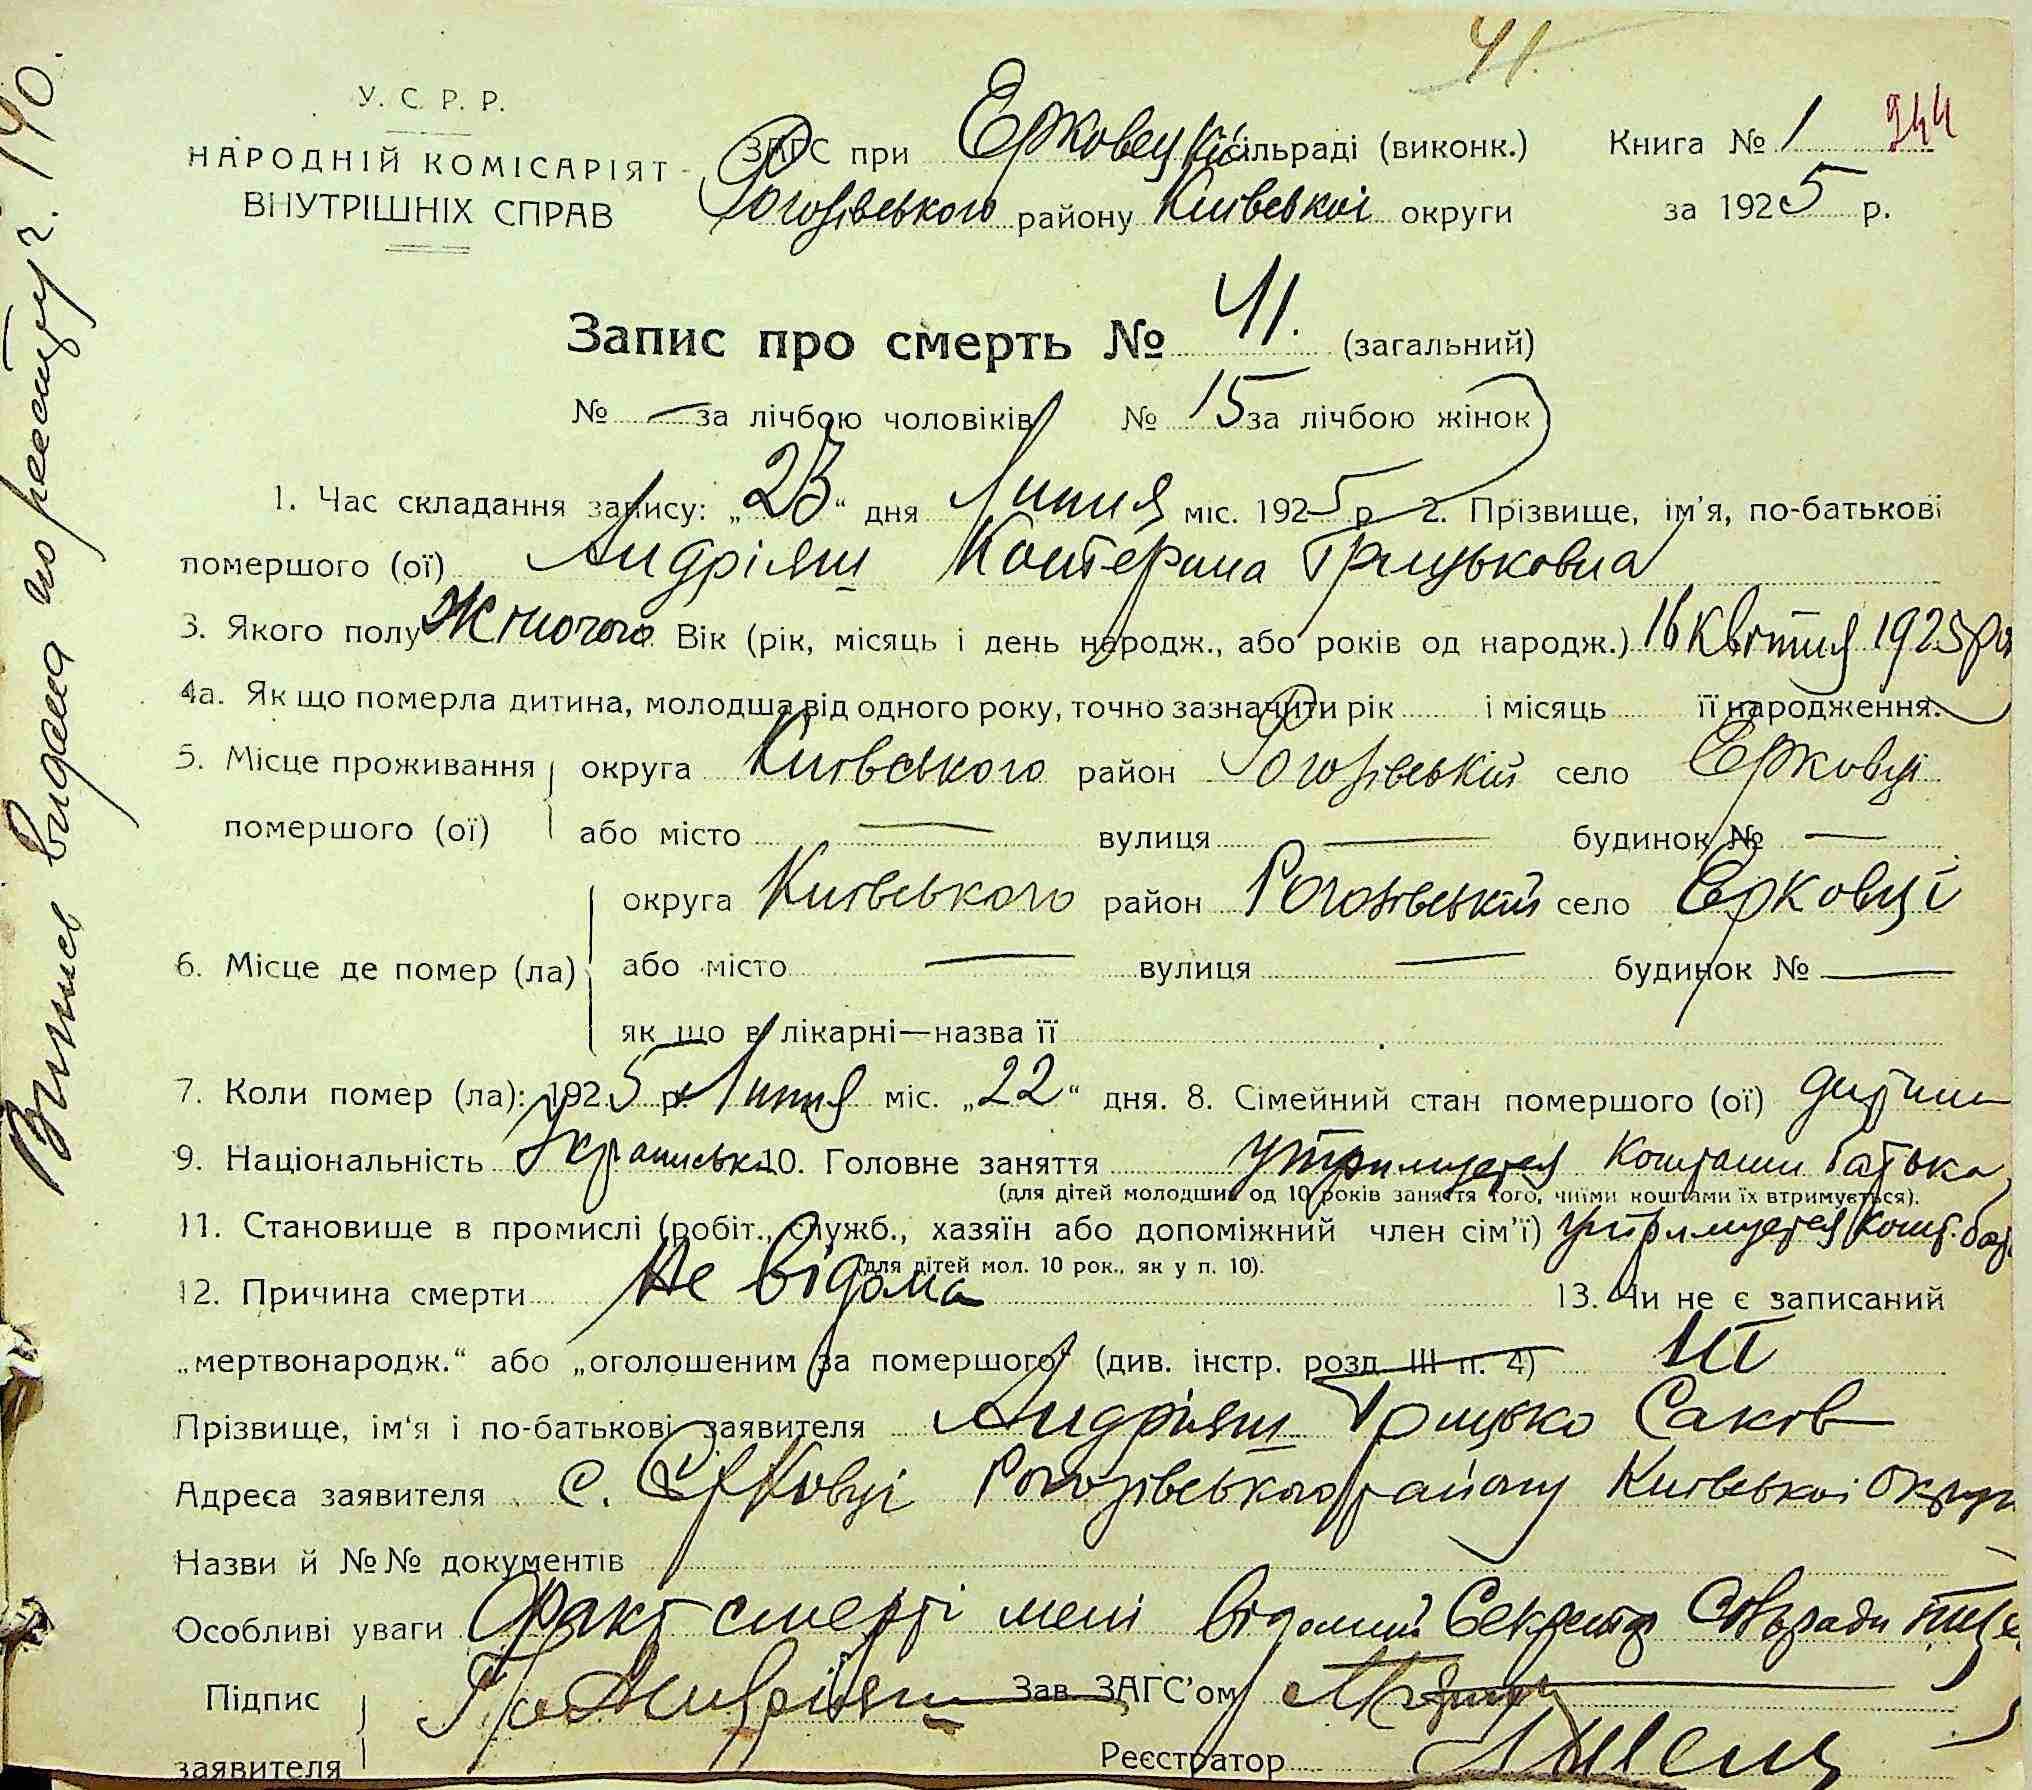 41.
У. С. Р. Р.
НАРОДНІЙ КОМІСАРІЯТ
ВНУТРІШНІХ СПРАВ
ЗАГС при Єрковецькій сільраді (виконк.)
Рогозівського району Київської округи
Книга № 1 244
за 1925 р.
Запис про смерть № 41. (загальний)
№ — за лічбою чоловіків № 15 за лічбою жінок
1. Час складання запису: „23“ дня Липня міс. 1925 р. 2. Прізвище, ім'я, по-батькові
помершого (ої) Андріяш Катерина Грицьковна
3. Якого полу Жіночого Вік (рік, місяць і день народж., або років од народж.) 16 Квітня 1925 р
4а. Як що померла дитина, молодша від одного року, точно зазначити рік і місяць її народження.
5. Місце проживання округа Київського район Рогозівській село Єрковці
помершого (ої) або місто — вулиця — будинок № —
округа Київського район Рогозівській село Єрковці
6. Місце де помер (ла) або місто — вулиця — будинок № —
як що в лікарні—назва її
7. Коли помер (ла): 1925 р. Липня міс. „22“ дня. 8. Сімейний стан помершого (ої) дитина
9. Національність Українська 10. Головне заняття утримується коштами батька
(для дітей молодших од 10 років заняття того, чиїми коштами їх втримується).
11. Становище в промислі (робіт., служб., хазяїн або допоміжний член сім'ї) утримується кошт. бать
(для дітей мол. 10 рок., як у п. 10).
12. Причина смерти Не відома 13. Чи не є записаний
„мертвонародж.“ або „оголошеним за помершого“ (див. інстр. розд. III п. 4) ні
Прізвище, ім'я і по-батькові заявителя Андріяш Грицько Саков
Адреса заявителя с. Єрковці Рогозівського району Київської округи
Назви й №№ документів
Особливі уваги Факт смерті мені відомий Секретар Сільради
Підпис Гр Андріяш Зав. ЗАГС'ом
заявителя Реєстратор
Випись видана по реестру г. 140.